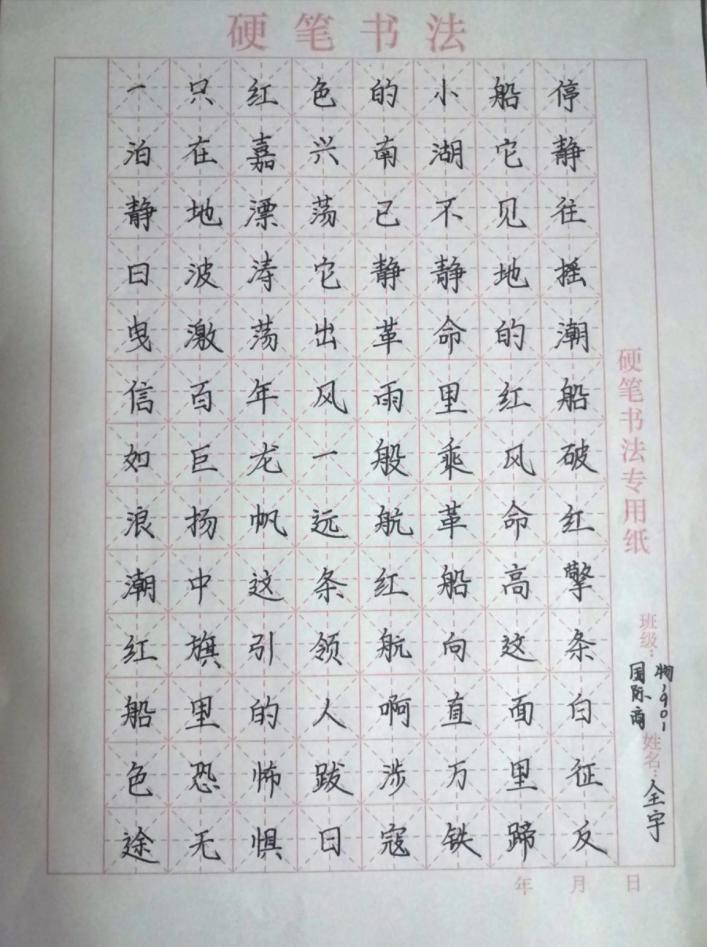 硬笔书法
一只红色的小船停
泊在嘉兴南湖它静
静地漂荡已不见往
日波涛它静静地摇
曳激荡出革命的潮
信百年风雨里红船
如巨龙一般乘风破
浪扬帆远航革命红
潮中这条红船高擎
红旗引领航向这条
船里的人啊直面白
色恐怖跋涉万里征
途无惧日寇铁蹄反
硬笔书法专用纸
班级：
物1901
国际商
姓名：全宇
年 月 日